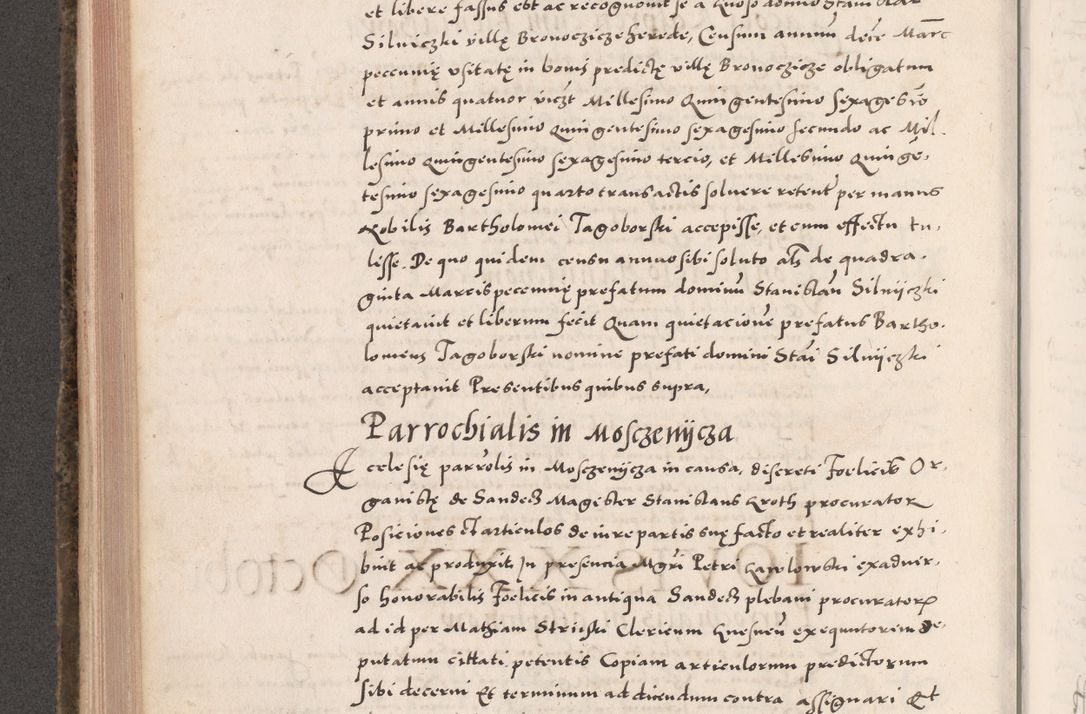 et libere fassus est ac recognovit se a Gnoso domino Stanislao
Silniczki villę Bronoczicze herede, Censum annuū decē Marc
pecunię usitatę in bonis predictę villę Bronoczicze obligatum
et annis quatuor viczt Millesimo Quingentesimo sexagesiō
primo et Millesimo Quingentesimo sexagesimo secundo ac Mil-
lesimo Quingentesimo sexagesimo tercio, et Millesimo Quinge-
tesimo sexagesimo quarto transactis solvere retent per manus
Nobilis Bartholomei Tagoborski accepisse, et cum effectu tu-
lisse. De quo quidem censu annuo sibi soluto als de quadra-
ginta Marcis pecunię prefatum dominū Stanislau Silnijczki
quietavit et liberum fecit Quam quietacionē prefatus Bartho-
lomeus Tagoborski nomine prefati domini Stāi Silnijczki
acceptavit Presentibus quibus supra,
Parrochialis in Mosczenijcza
Ecclesię parrolis in Mosczenijcza in causa, discreti Foelicis Or-
ganistę de Sandecz Magister Stanislaus Kroth procurator
Posiciones et articulos de iure partis suę facto et realiter exhi-
buit ac produxit, In presencia Mgri Petri Kawlowski ex adver-
so honorabilis Foelicis in antiqua Sandecz plebani procurator
ad id per Mathiam Clericum Gnesnen exequutorem de-
putatum cittati. petentis Copiam articulorum predictorum
sibi decerni Et terminum ad dicendum contra assignari Et